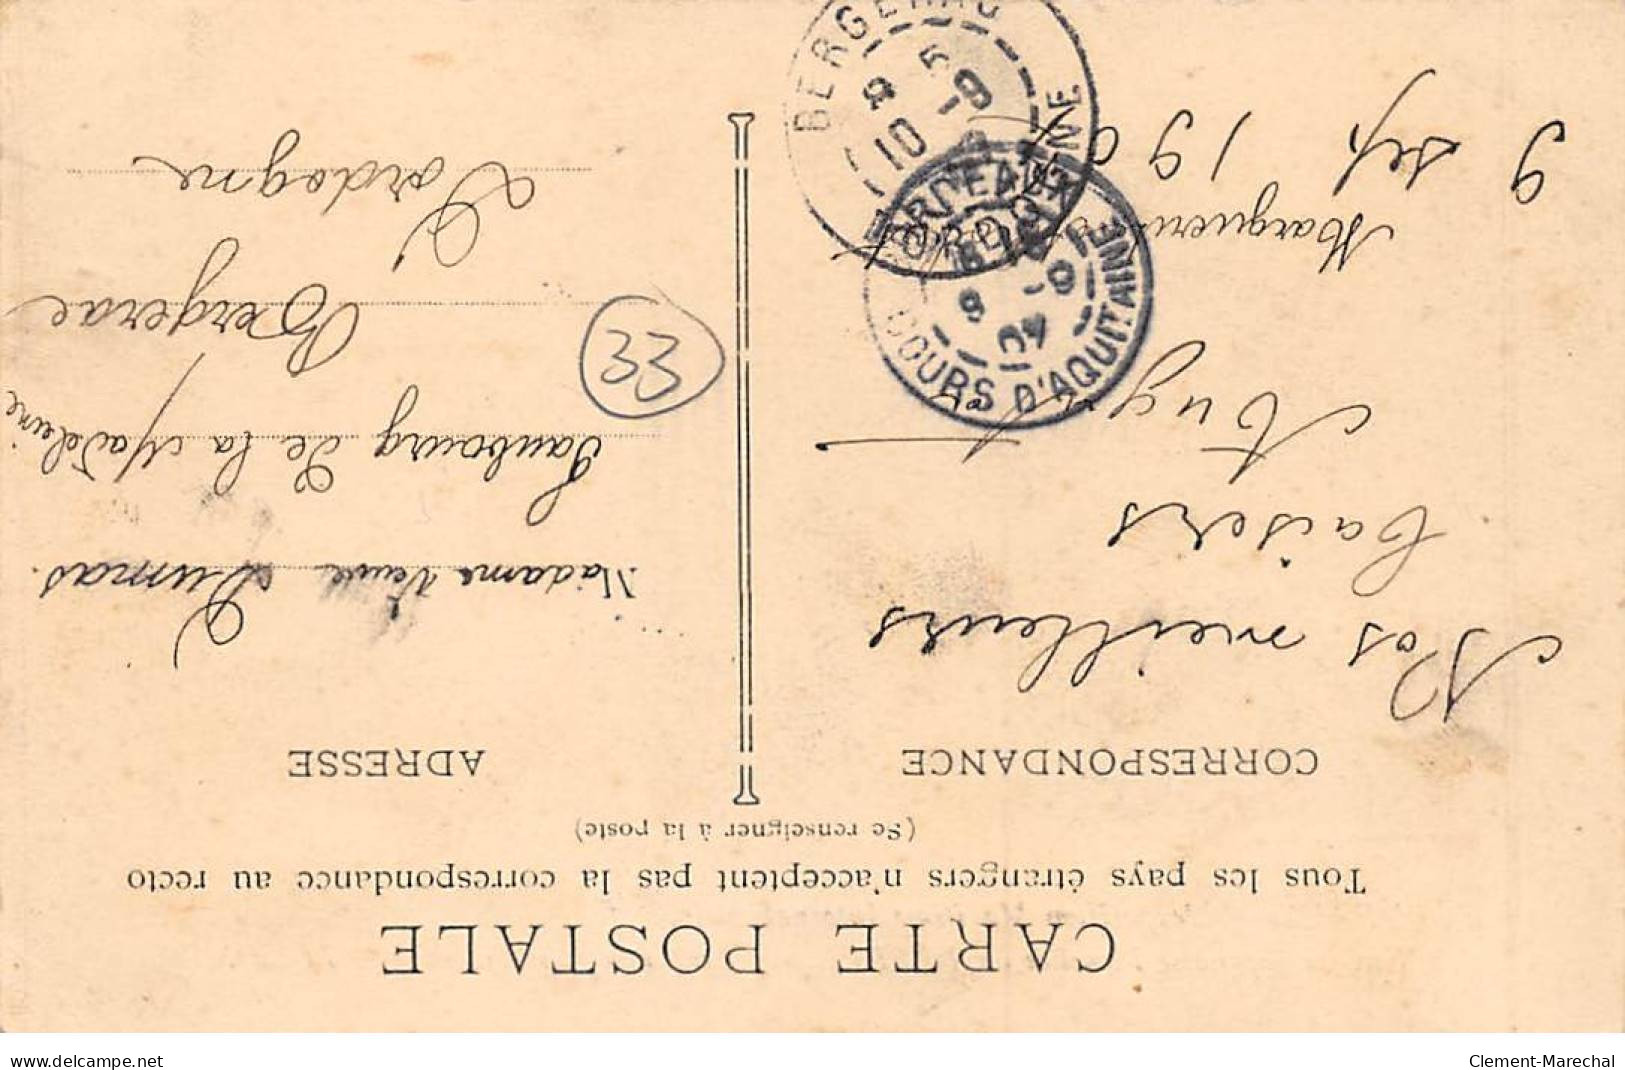 CARTE POSTALE
Tous les pays étrangers n'acceptent pas la correspondance au recto
(Se renseigner à la poste)
CORRESPONDANCE
Nos meilleurs
baisers
9 sep 190
ADRESSE
Madame Veuve Dumas
Faubourg de la Madeleine
Bergerac
Dordogne
33
BERGERAC
8 5
10 -9
BORDEAUX
COURS D'AQUITAINE
9 -9
09
www.delcampe.net
Clement-Marechal